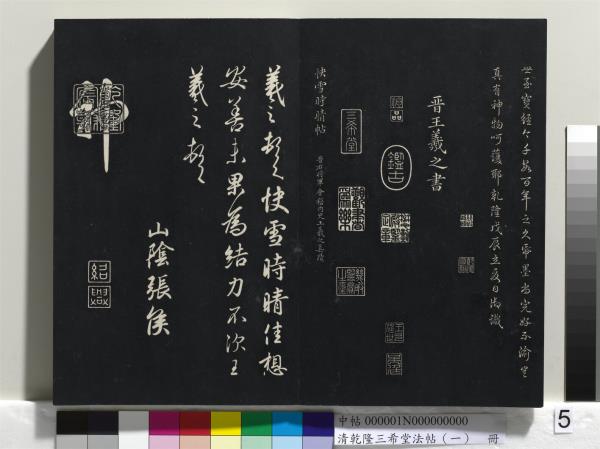 世至寶經今千數百年之久帋墨尚完好不渝豈
真有神物呵護耶乾隆戊辰立夏日御識
晉王羲之書
神品
鑑古
三希堂
快雪時晴帖
晉右將軍會稽內史王羲之真蹟
羲之頓首快雪時晴佳想
安善未果為結力不次王
羲之頓首
山陰張侯
紹興
中帖 000001N000000000
清乾隆三希堂法帖(一) 冊
5